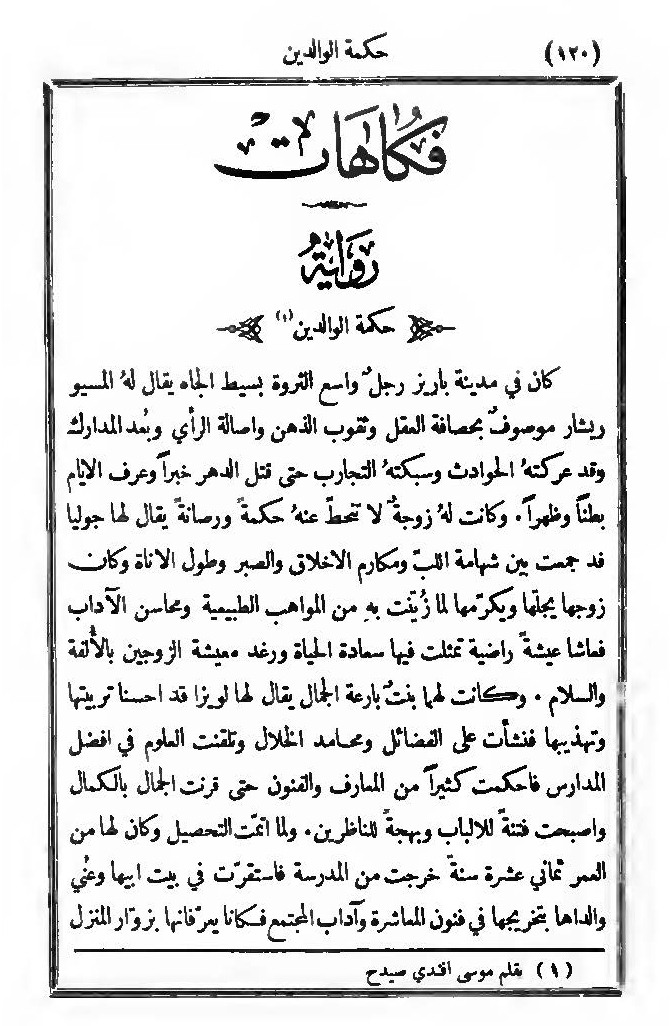 (١٢٠) حكمة الوالدين
فكاهات
رواية
حكمة الوالدين (١)
كان في مدينة باريز رجلٌ واسع الثروة بسيط الجاه يقال لهُ المسيو
ريشار موصوفٌ بحصافة العقل وثقوب الذهن واصالة الرأي وبُعد المدارك
وقد عركتهُ الحوادث وسبكتهُ التجارب حتى قتل الدهر خبراً وعرف الايام
بطناً وظهراً. وكانت لهُ زوجةٌ لا تنحطّ عنهُ حكمةً ورصانةً يقال لها جوليا
قد جمعت بين شهامة القلب ومكارم الاخلاق والصبر وطول الاناة وكان
زوجها يجلّها ويكرّمها لما زُيّنت بهِ من المواهب الطبيعية ومحاسن الآداب
فعاشا عيشةً راضية تمثلت فيها سعادة الحياة ورغد معيشة الزوجين بالأُلفة
والسلام. وكانت لهما بنتٌ بارعة الجمال يقال لها لويزا قد احسنا تربيتها
وتهذيبها فنشأت على الفضائل ومحامد الخلال وتلقنت العلوم في افضل
المدارس فاحكمت كثيراً من المعارف والفنون حتى قرنت الجمال بالكمال
واصبحت فتنةً للالباب وبهجةً للناظرين. ولما اتمّت التحصيل وكان لها من
العمر ثماني عشرة سنةً خرجت من المدرسة فاستقرّت في بيت ابيها وعُني
والداها بتخريجها في فنون المعاشرة وآداب المجتمع فكانا يعرّفانها بزوّار المنزل
(١) بقلم موسى افندي صيدح